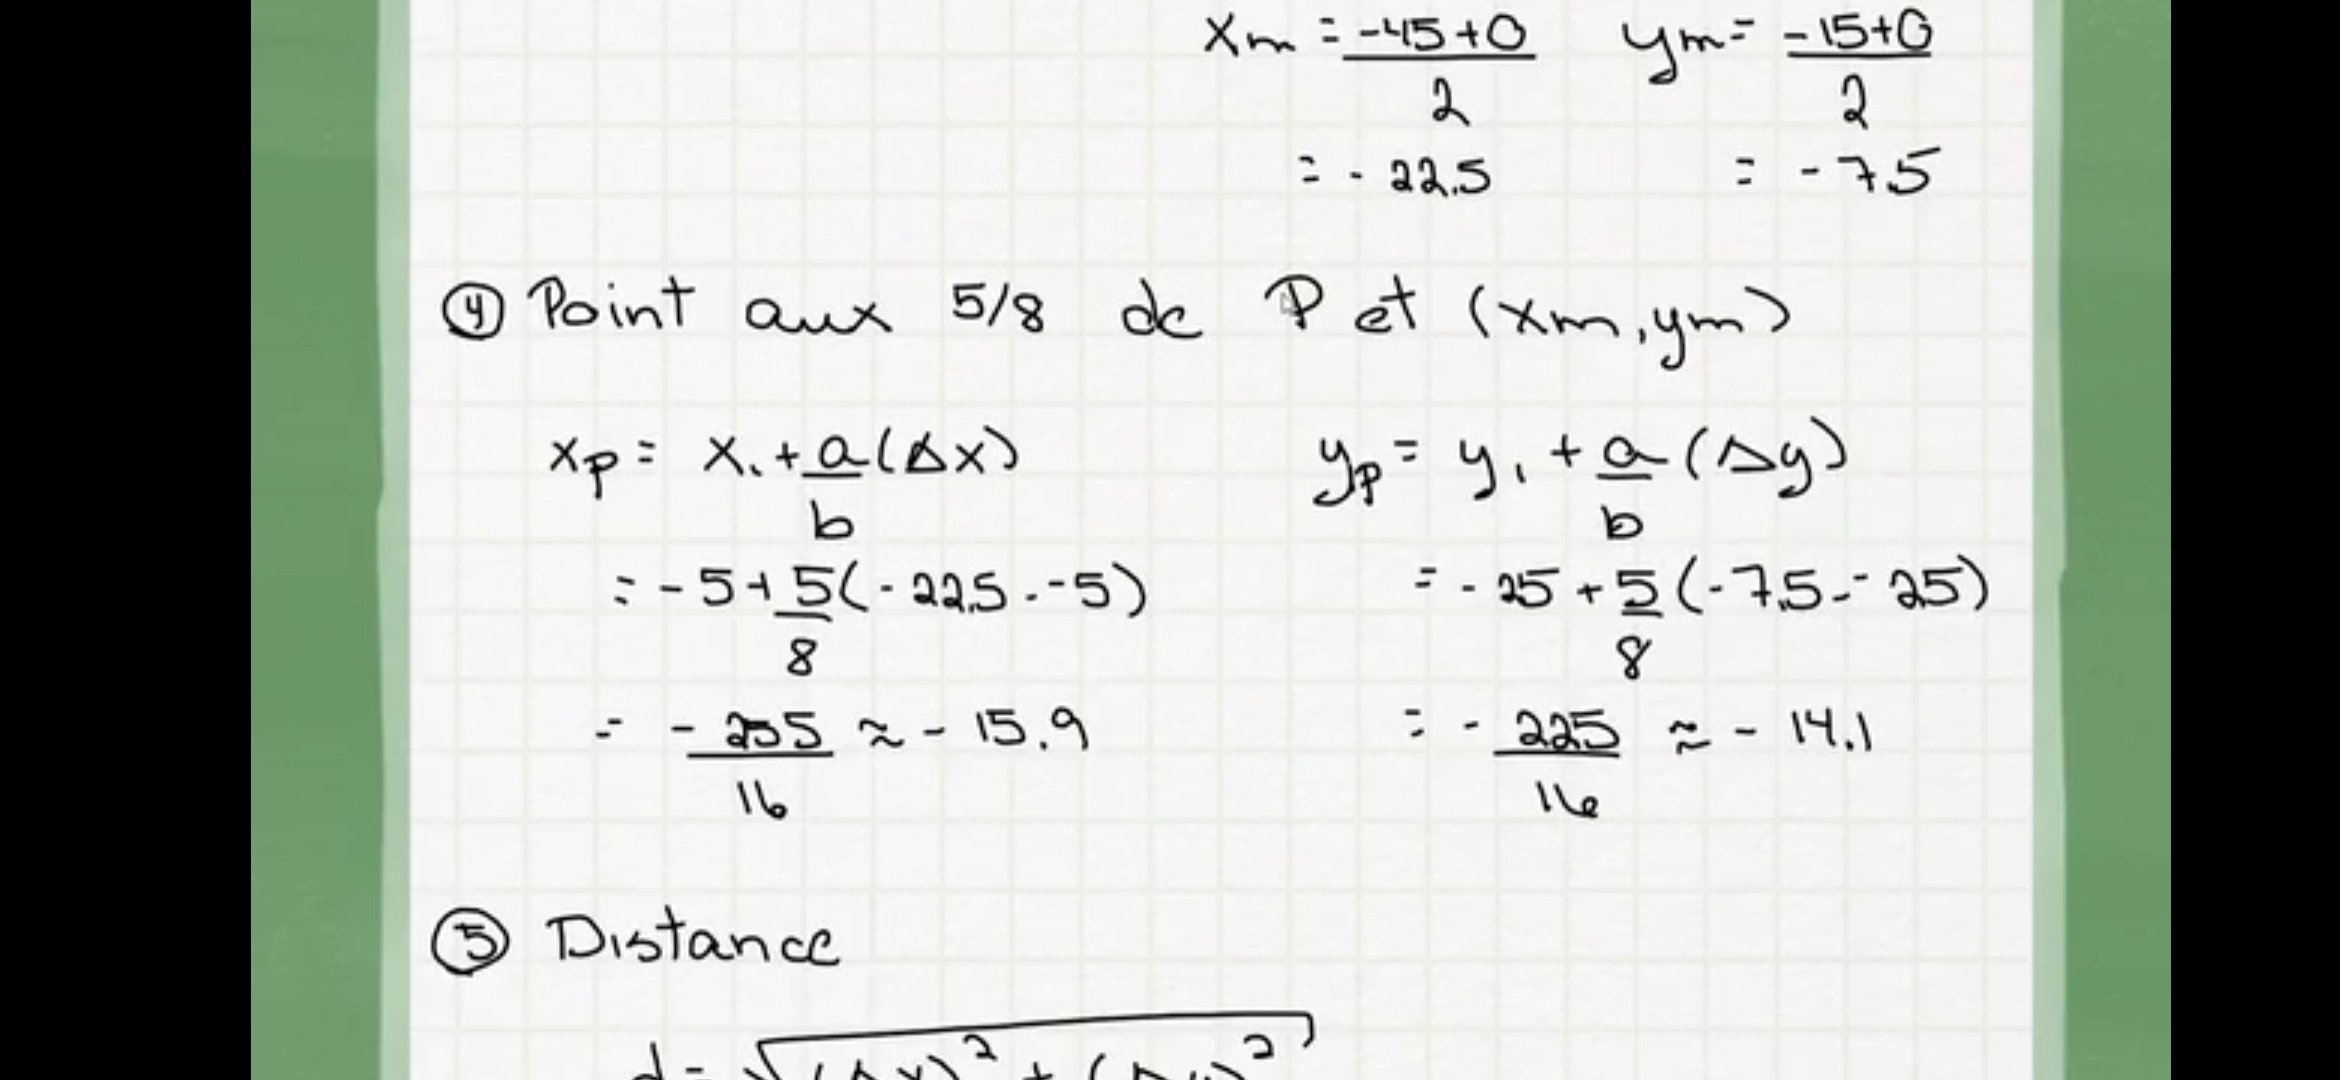 xm = -45+0/2 ym = -15+0/2
= -22.5 = -7.5
④ Point aux 5/8 de P et (xm, ym)
xp = x1 + a/b (Δx) yp = y1 + a/b (Δy)
= -5 + 5/8 (-22.5 - -5) = -25 + 5/8 (-7.5 - -25)
= -255/16 ≈ -15.9 = -225/16 ≈ -14.1
⑤ Distance
d = √(Δx)² + (Δy)²